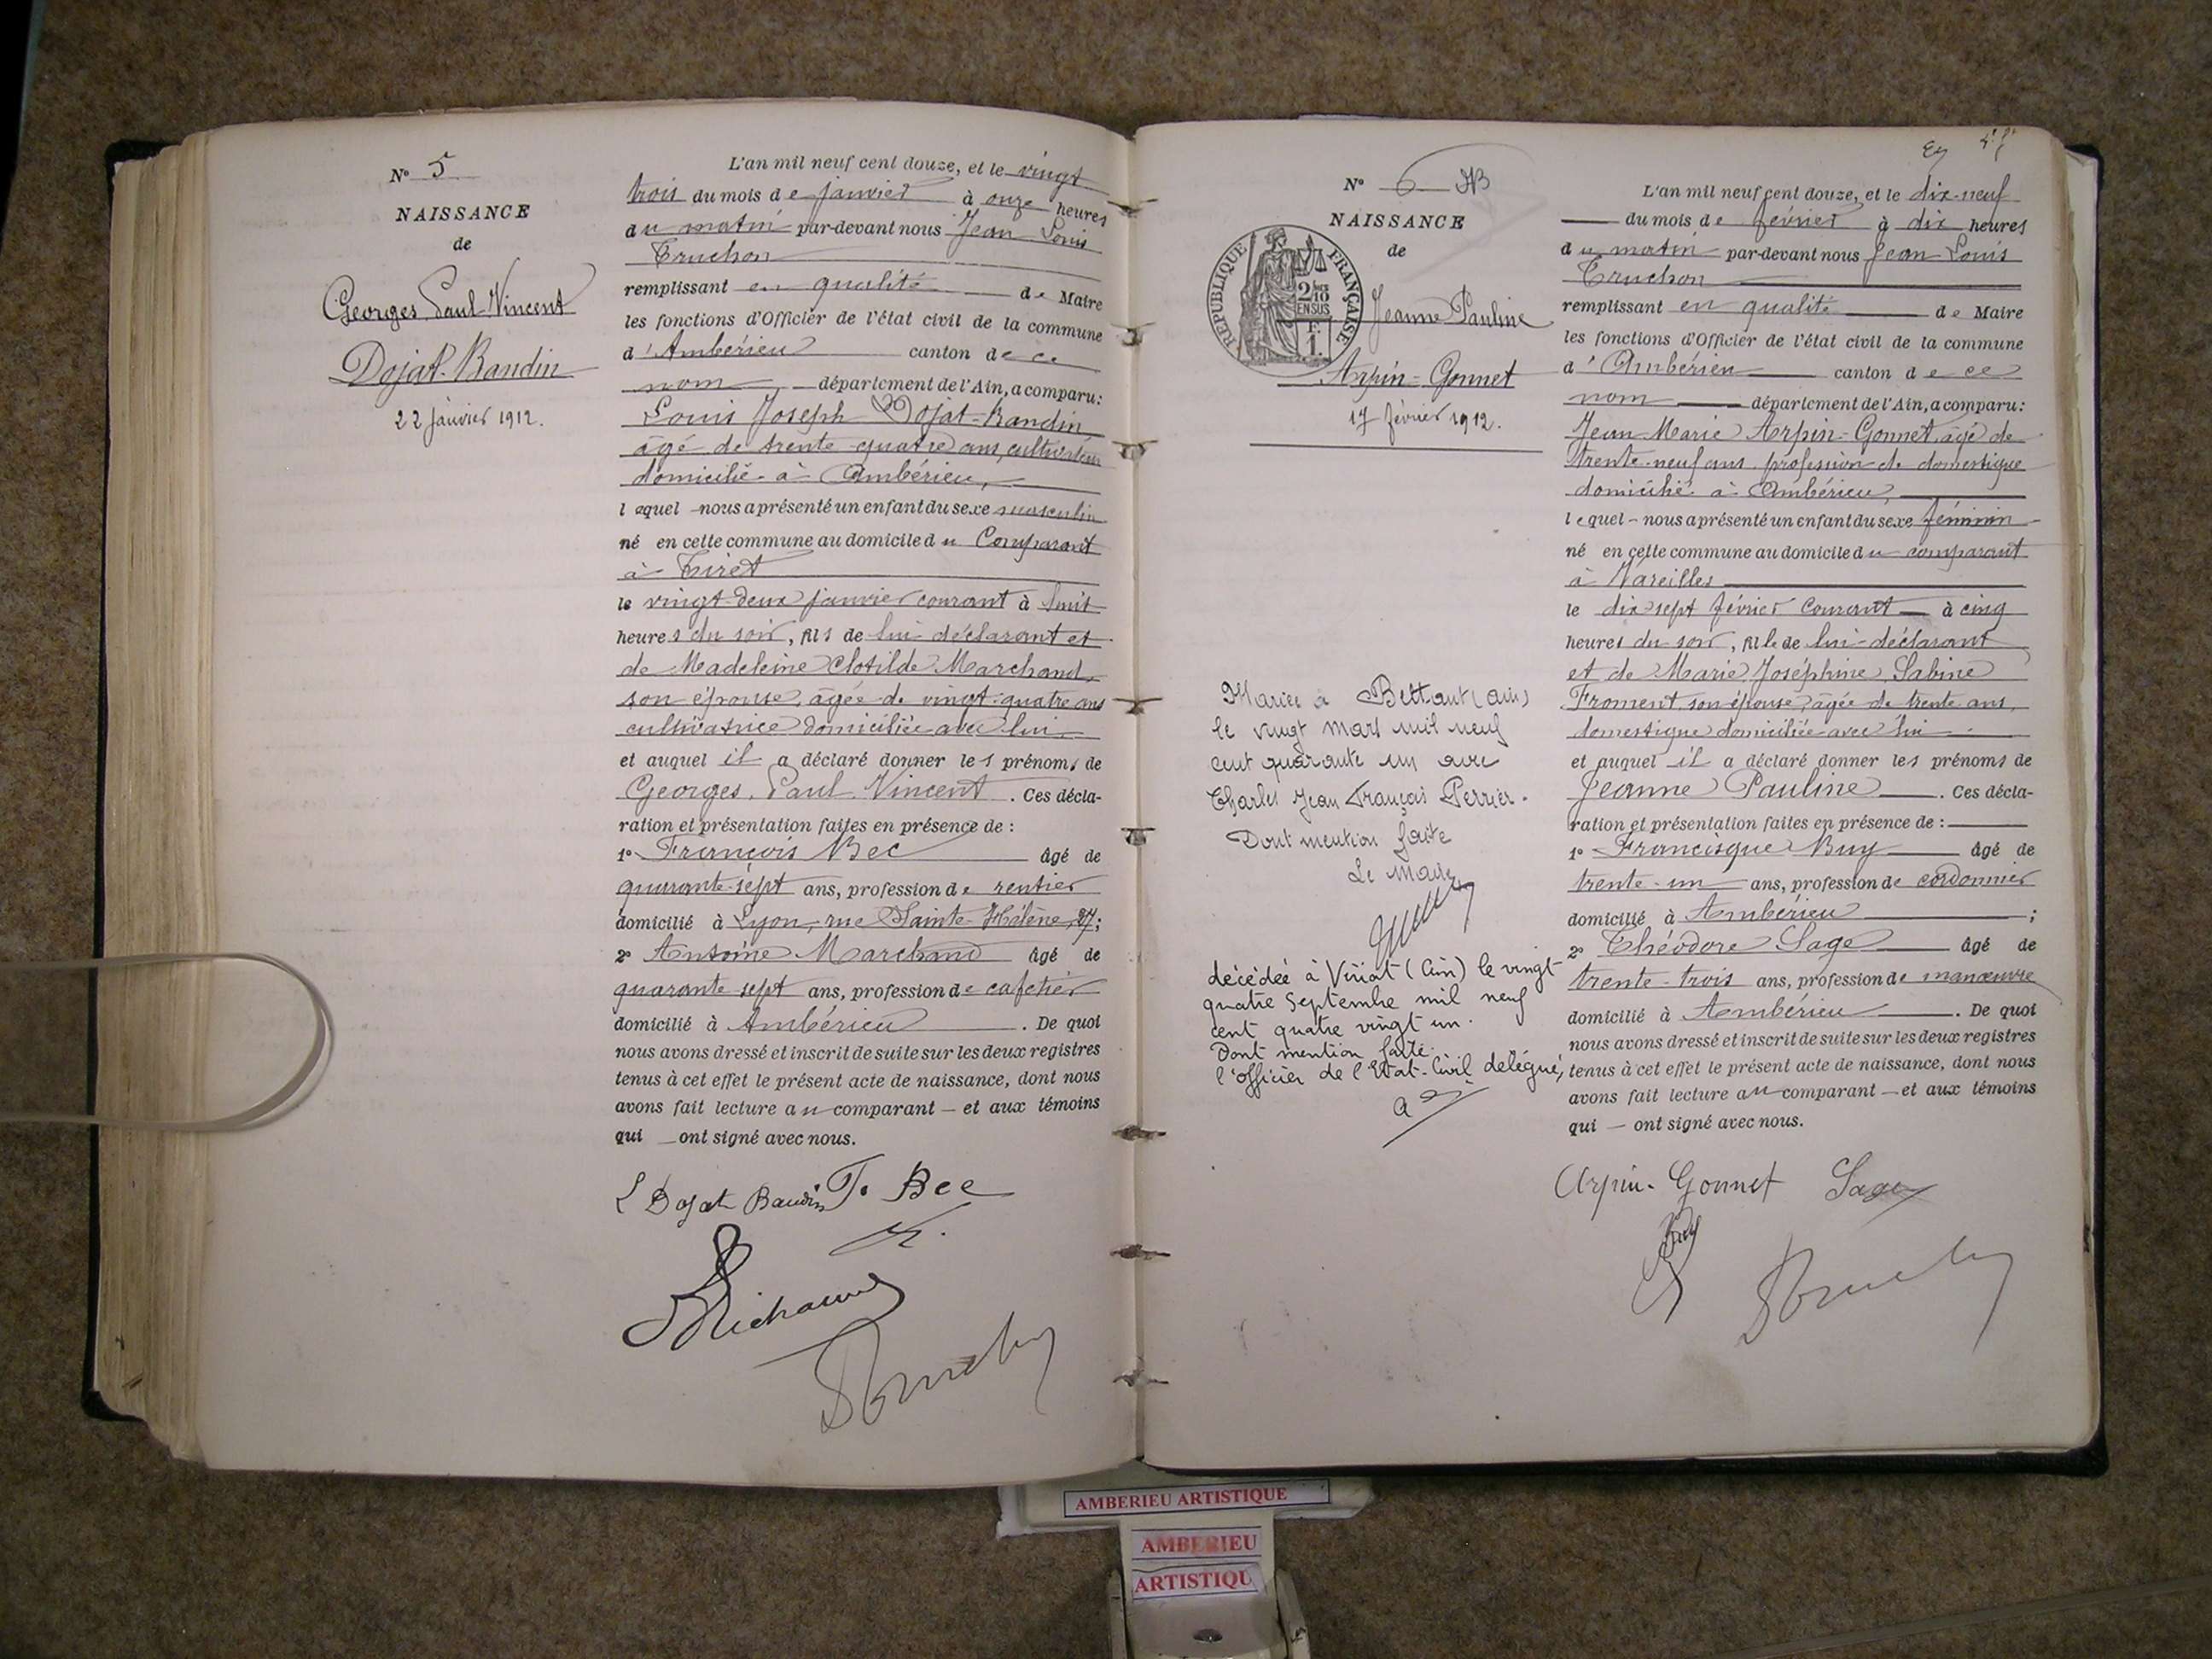 N° 5
NAISSANCE
de
Georges Paul Vincent
Dojat-Baudin
22 janvier 1912.
L'an mil neuf cent douze, et le vingt
trois du mois de janvier à onze heures
du matin par-devant nous Jean Louis
Truchon
remplissant en qualité de Maire
les fonctions d'Officier de l'état civil de la commune
d'Ambérieu canton de ce
nom, département de l'Ain, a comparu:
Louis Joseph Dojat-Baudin
âgé de trente-quatre ans, cultivateur
domicilié à Ambérieu,
lequel nous a présenté un enfant du sexe masculin
né en cette commune au domicile du Comparant
à Tiret
le vingt-deux janvier courant à huit
heures du soir, fils de lui déclarant et
de Madeleine Clotilde Marchand,
son épouse, âgée de vingt-quatre ans
cultivatrice domiciliée avec lui
et auquel il a déclaré donner les prénoms de
Georges Paul Vincent. Ces décla-
ration et présentation faites en présence de :
1° François Bec âgé de
quarante-sept ans, profession de rentier
domicilié à Lyon, rue Sainte-Hélène, 27;
2° Antoine Marchand âgé de
quarante sept ans, profession de cafetier
domicilié à Ambérieu. De quoi
nous avons dressé et inscrit de suite sur les deux registres
tenus à cet effet le présent acte de naissance, dont nous
avons fait lecture au comparant — et aux témoins
qui — ont signé avec nous.
L Dojat Baudin F. Bec
Truchon
N° 6
NAISSANCE
de
RÉPUBLIQUE FRANÇAISE
2/10
EN SUS
F.
1.
Jeanne Pauline
Arpin-Gonnet
17 février 1912.
Mariée à Bettant (Ain)
le vingt mars mil neuf
cent quarante un avec
Charles Jean François Perrier.
Dont mention faite
Le Maire
décédée à Viriat (Ain) le vingt
quatre Septembre mil neuf
cent quatre vingt un.
Dont mention faite.
l'officier de l'Etat-Civil délégué,
L'an mil neuf cent douze, et le dix-neuf
du mois de février à dix heures
du matin par-devant nous Jean Louis
Truchon
remplissant en qualité de Maire
les fonctions d'Officier de l'état civil de la commune
d'Ambérieu canton de ce
nom département de l'Ain, a comparu:
Jean-Marie Arpin-Gonnet, âgé de
trente-neuf ans profession de domestique
domicilié à Ambérieu,
lequel — nous a présenté un enfant du sexe féminin
né en cette commune au domicile du comparant
à Vareilles
le dix sept février courant — à cinq
heures du soir, fille de lui-déclarant
et de Marie Joséphine Sabine
Froment, son épouse, âgée de trente ans,
domestique domiciliée avec lui
et auquel il a déclaré donner les prénoms de
Jeanne Pauline. Ces décla-
ration et présentation faites en présence de :
1° Francisque Buy âgé de
trente-un ans, profession de cordonnier
domicilié à Ambérieu ;
2° Théodore Sage âgé de
trente-trois ans, profession de manœuvre
domicilié à Ambérieu. De quoi
nous avons dressé et inscrit de suite sur les deux registres
tenus à cet effet le présent acte de naissance, dont nous
avons fait lecture au comparant — et aux témoins
qui — ont signé avec nous.
Arpin-Gonnet Sage
Buy
Truchon
AMBERIEU ARTISTIQUE
AMBERIEU
ARTISTIQU